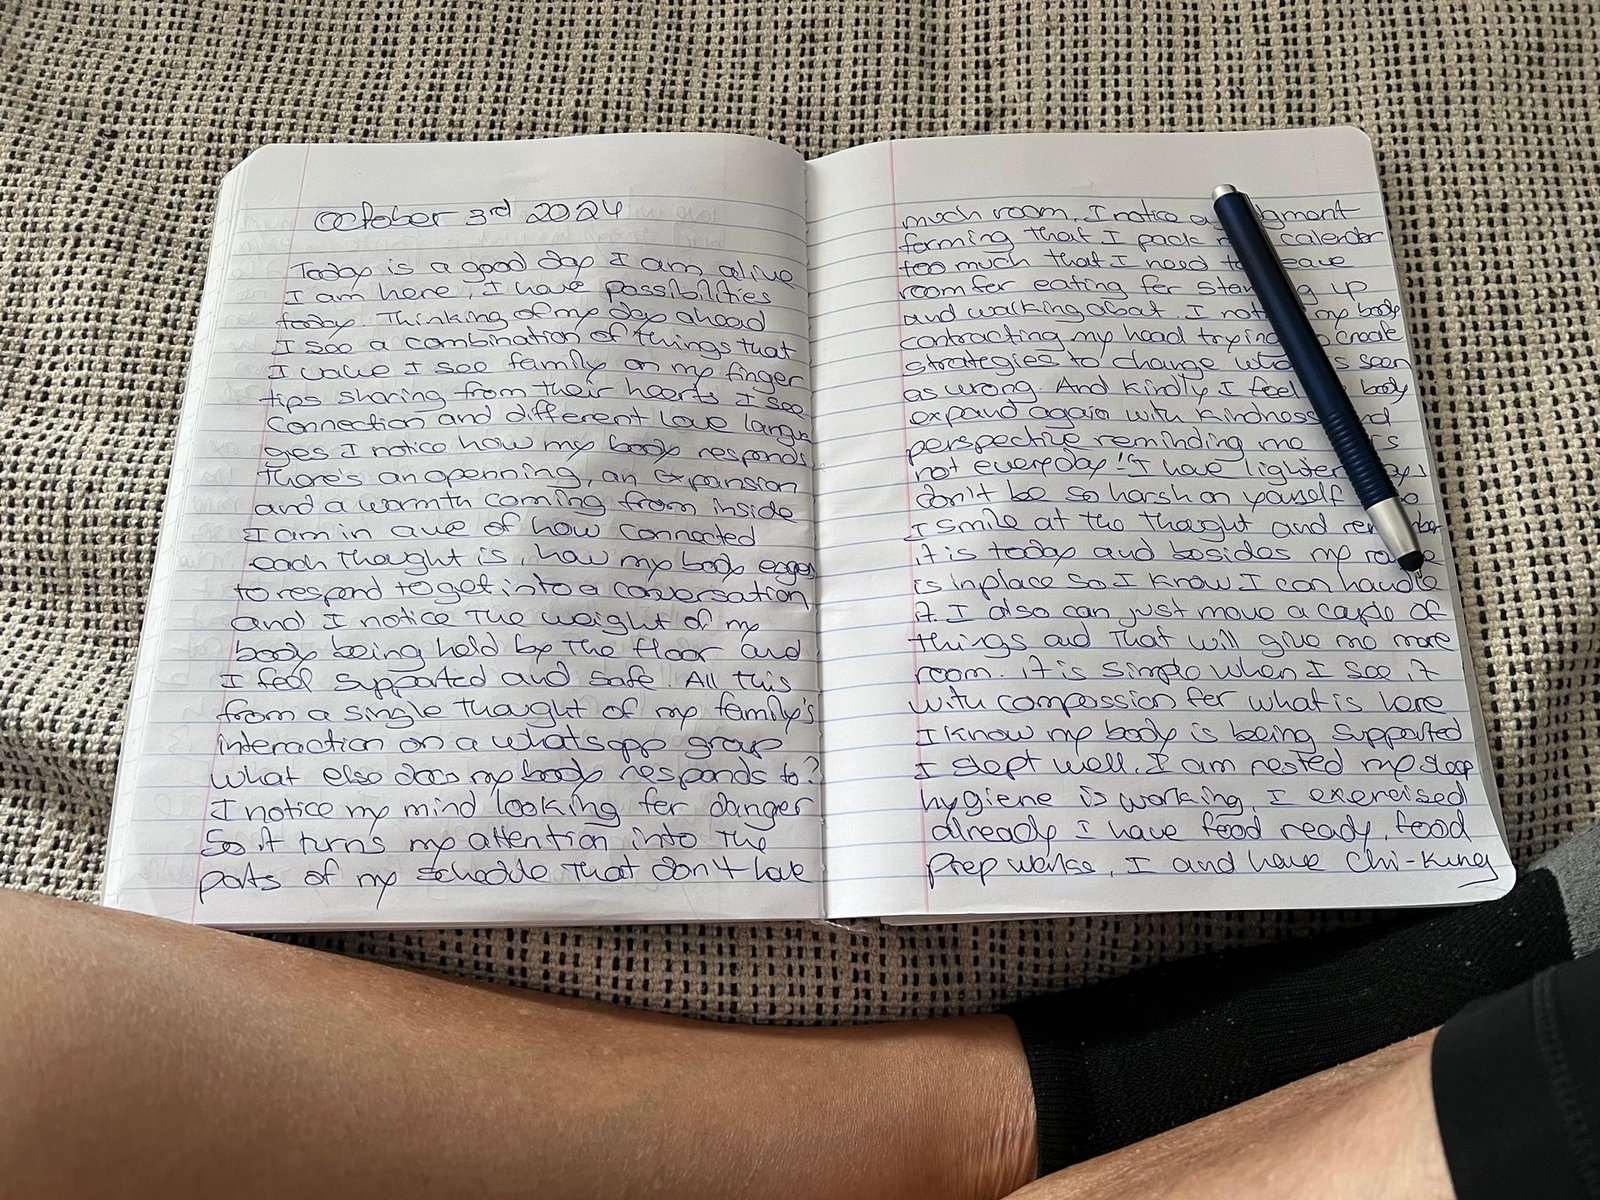 October 3rd 2024
Today is a good day I am alive
I am here, I have possibilities
today. Thinking of my day ahead
I see a combination of things that
I value I see family on my finger
tips sharing from their hearts I see
connection and different love langua
ges I notice how my body responds
There's an openning, an expansion
and a warmth coming from inside
I am in awe of how connected
each thought is, how my body eager
to respond to get into a conversation
and I notice the weight of my
body being held by the floor and
I feel supported and safe. All this
from a single thought of my family's
interaction on a whatsapp group
what else does my body responds to?
I notice my mind looking for danger
So it turns my attention into the
parts of my schedule that don't have
much room. I notice a
forming that I pack calender
too much that I need to
room for eating for up
and walking about. I my body
contracting my head trying create
strategies to change seen
as wrong. And kindly I feel body
expand again with kindness
perspective reminding me
not everyday! "I have lighter
don't be so harsh on yourself
I smile at the thought and
it is today and besides my
is in place so I know I can handle
it. I also can just move a couple of
things and that will give me more
room. it is simple when I see it
with compassion for what is here
I know my body is being supported
I slept well. I am rested my sleep
hygiene is working, I exercised
already I have food ready, food
prep works, I and have Chi-Kung